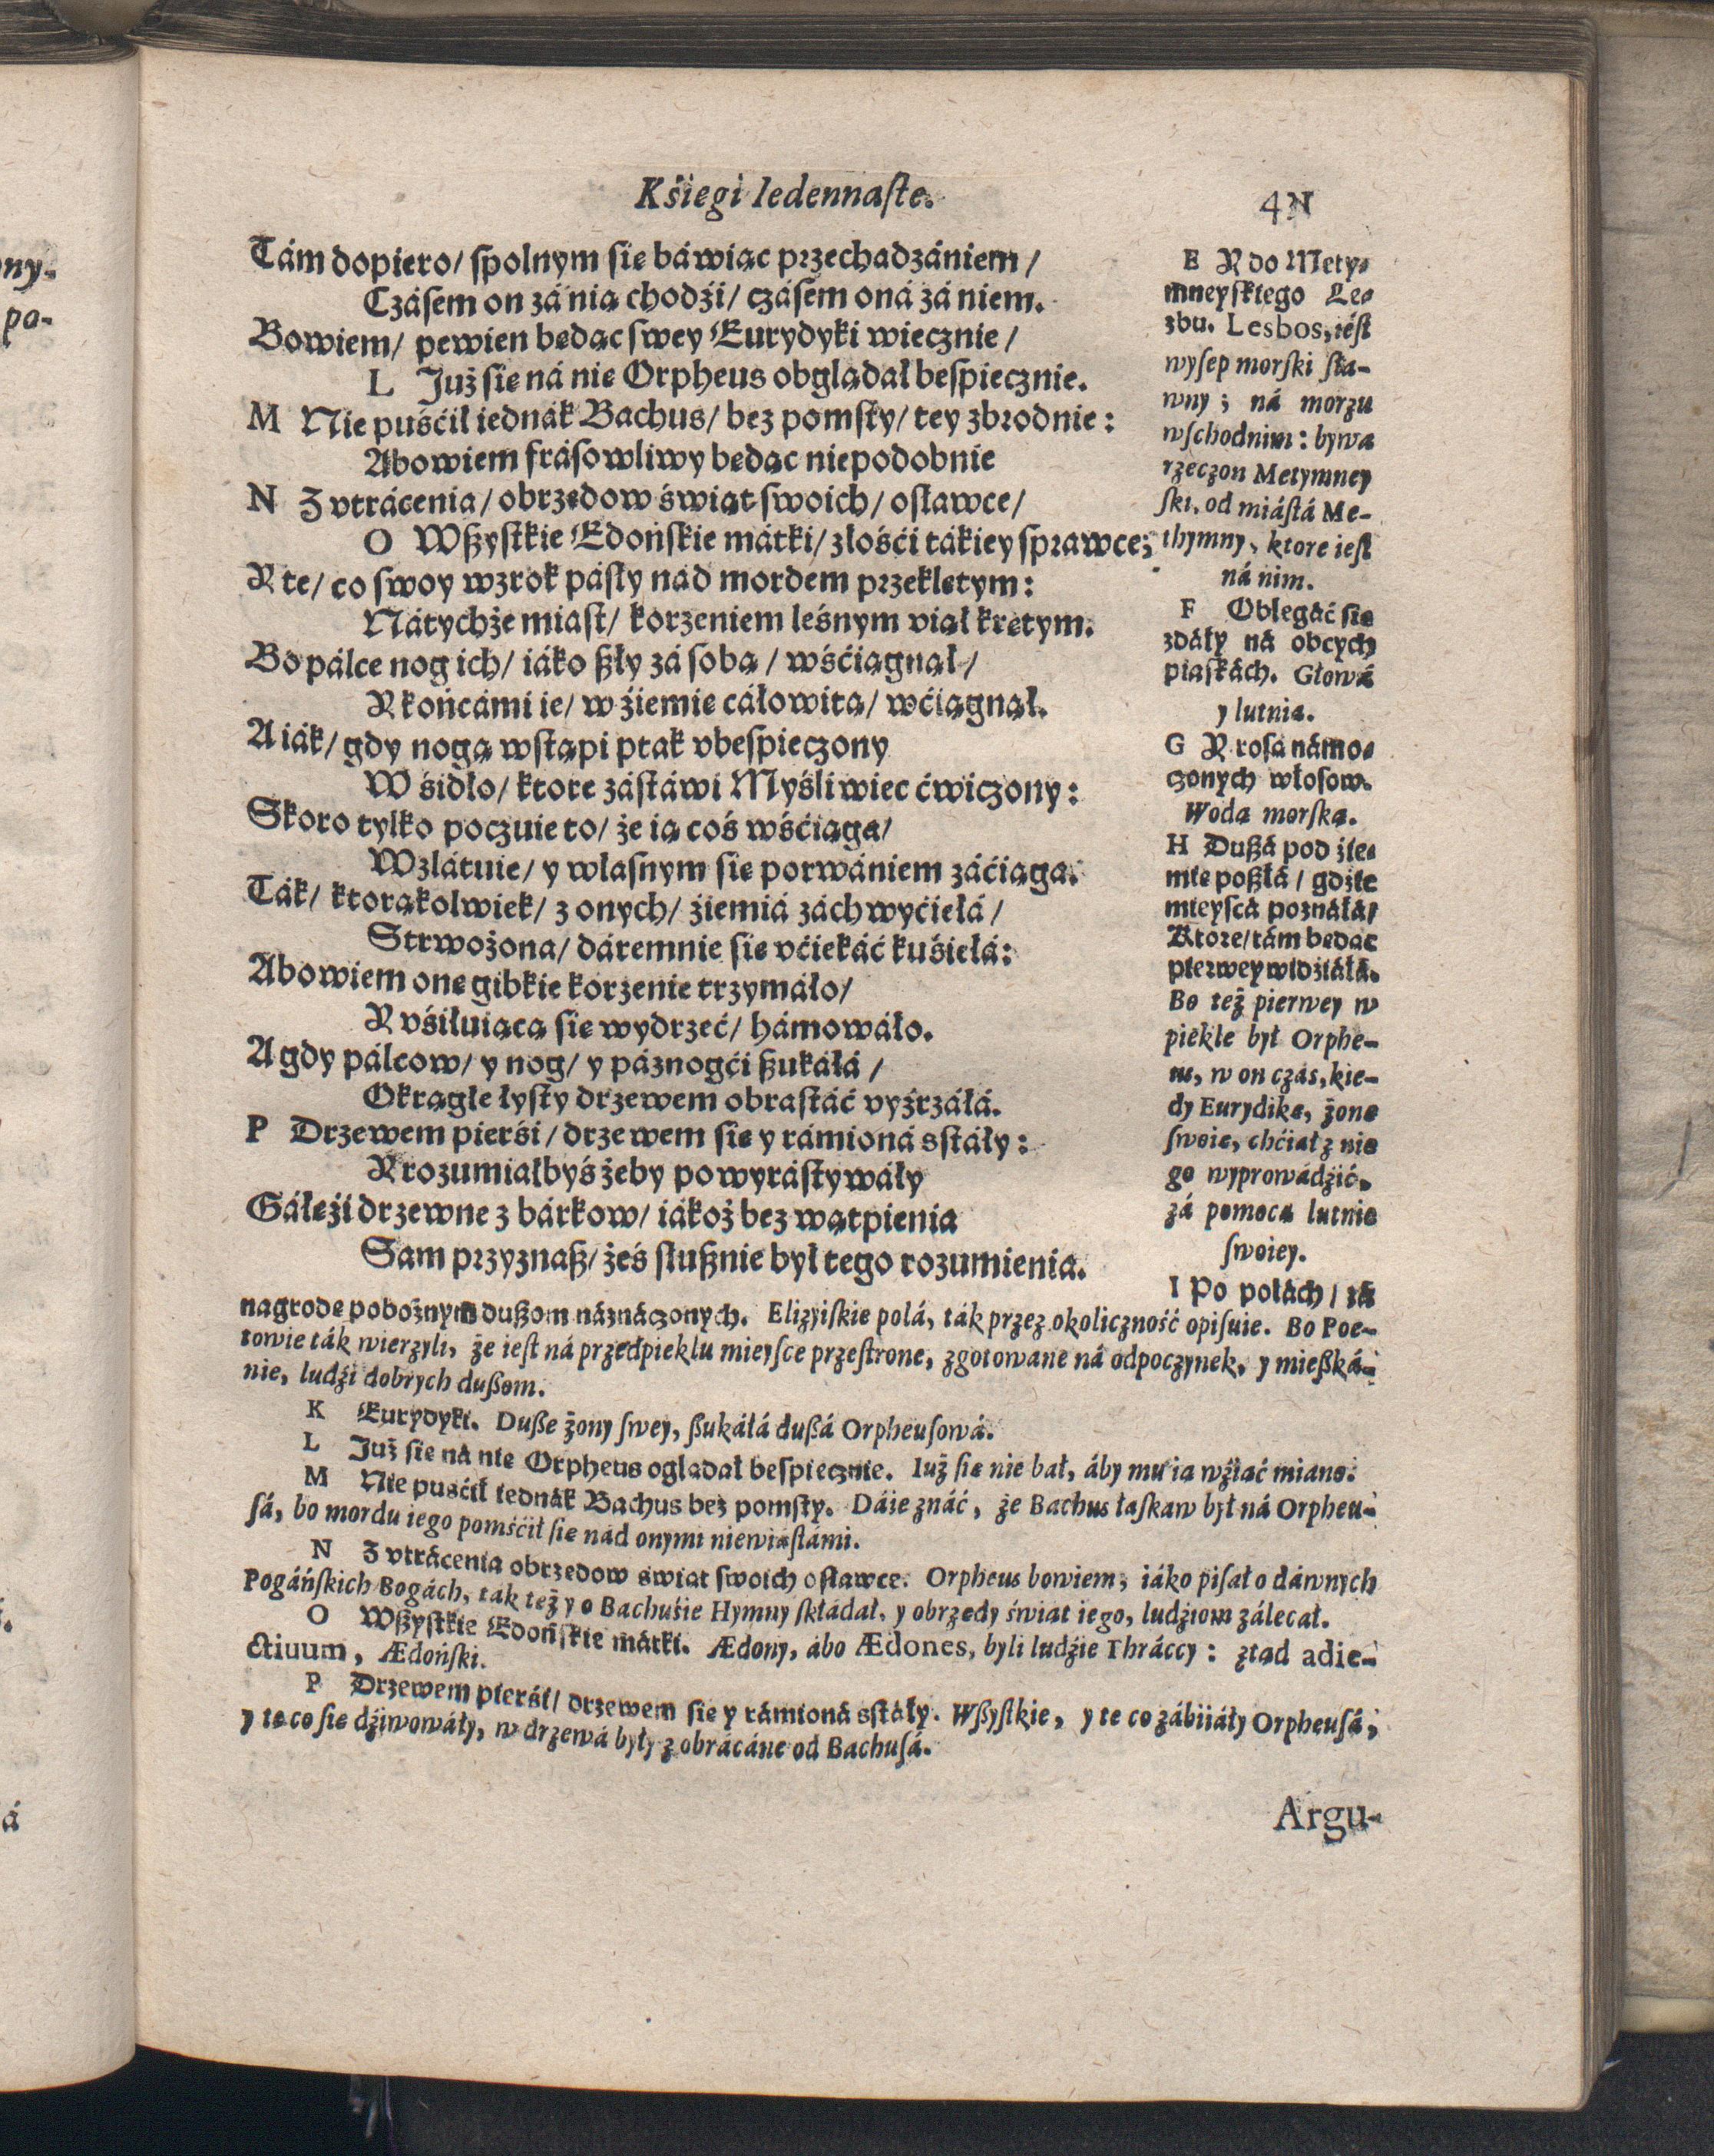 Kśięgi Iedennaſte.
Tám dopiero/ ſpolnym ſię báwiąc przechadzániem/
Czáſem on zá nią chodźi/ czáſem oná zá niem.
Bowiem/ pewien będąc ſwey Eurydyki wiecznie/
L Już ſię ná nię Orpheus obglądał beſpiecznie.
M Nie puśćił iednák Bachus/ bez pomſty/ tey zbrodnie:
Abowiem fráſowliwy będąc niepodobnie
N Z vtrácenia/ obrzędow świąt ſwoich/ oſławce/
O Wßyſtkie Edońſkie mátki/ złośći tákiey ſprawce;
Y te/ co ſwoy wzrok páſły nád mordem przeklętym:
Nátychże miaſt/ korzeniem leśnym viął krętym.
Bo pálce nog ich/ iáko ßły zá ſobą/ wśćiągnął/
Y końcámi ie/ w źiemię cáłowitą/ wćiągnął.
A iák/ gdy nogą wſtąpi ptak vbeſpieczony
W śidło/ ktore záſtáwi Myśliwiec ćwiczony:
Skoro tylko poczuie to/ że ią coś wśćiąga/
Wzlátuie/ y właſnym ſię porwániem záćiąga.
Ták/ ktorąkolwiek/ z onych/ źiemiá záchwyćiełá/
Strwożona/ dáremnie ſię vćiekáć kuśiełá:
Abowiem onę gibkie korzenie trzymáło/
Y vśiłuiącą ſię wydrzeć/ hámowáło.
A gdy pálcow/ y nog/ y páznogći ßukáłá/
Okrągłe łyſty drzewem obraſtáć vyźrzáłá.
P Drzewem pierśi/ drzewem ſię y rámioná sſtáły:
Y rozumiałbyś żeby powyráſtywáły
Gáłęźi drzewne z bárkow/ iákoż bez wątpienia
Sam przyznaß/ żeś ſłußnie był tego rozumienia.
E Y do Mety-
mneyſkiego Le-
zbu. Lesbos, ieſt
wyſep morſki ſła-
wny; ná morzu
wſchodnim: bywa
rzeczon Metymney
ſki, od miáſtá Me-
thymny, ktore ieſt
ná nim.
F Oblegáć ſię
zdáły ná obcych
piaſkách. Głowá
y lutnia.
G Y roſą námo-
czonych włoſow.
Wodą morſką.
H Dußá pod źie-
mię poßłá/ gdźie
mieyſcá poználá/
Ktore/ tám będąc
pierwey widźiáłá.
Bo też pierwey w
piekle był Orphe-
us, w on czás, kie-
dy Eurydikę, żonę
ſwoię, chćiał z nie
go wyprowádźić,
zá pomocą lutnie
ſwoiey.
I Po polách/ zá
nagrodę pobożnym dußom náznáczonych. Elizyiſkie polá, ták przez okoliczność opiſuie. Bo Poe-
towie ták wierzyli, że ieſt ná przedpieklu mieyſce przeſtrone, zgotowane ná odpoczynek, y mießká-
nie, ludźi dobrych dußom.
K Eurydyki. Duße żony ſwey, ßukáłá dußá Orpheuſowá.
L Już ſię ná nię Orpheus oglądał beſpiecznie. Iuż ſię nie bał, áby mu ią wźiąć miano.
M Nie puśćił iednák Bachus bez pomſty. Dáie znáć, że Bachus łaſkaw był ná Orpheu-
ſá, bo mordu iego pomśćił ſię nád onymi niewiáſtámi.
N Z vtrácenia obrzędow świąt ſwoich oſławce. Orpheus bowiem, iáko piſał o dawnych
Pogáńſkich Bogách, ták też y o Bachuśie Hymny ſkłádał, y obrzędy świąt iego, ludźiom zálecał.
O Wßyſtkie Edońſkie mátki. Ædony, ábo Ædones, byli ludźie Thráccy: ztąd adie-
ctiuum, Ædońſki.
P Drzewem pierśi/ drzewem ſię y rámioná sſtáły. Wßyſtkie, y te co zábiiáły Orpheuſá,
y te co ſię dźiwowáły, w drzewá były z obrácáne od Bachuſá.
Argu-